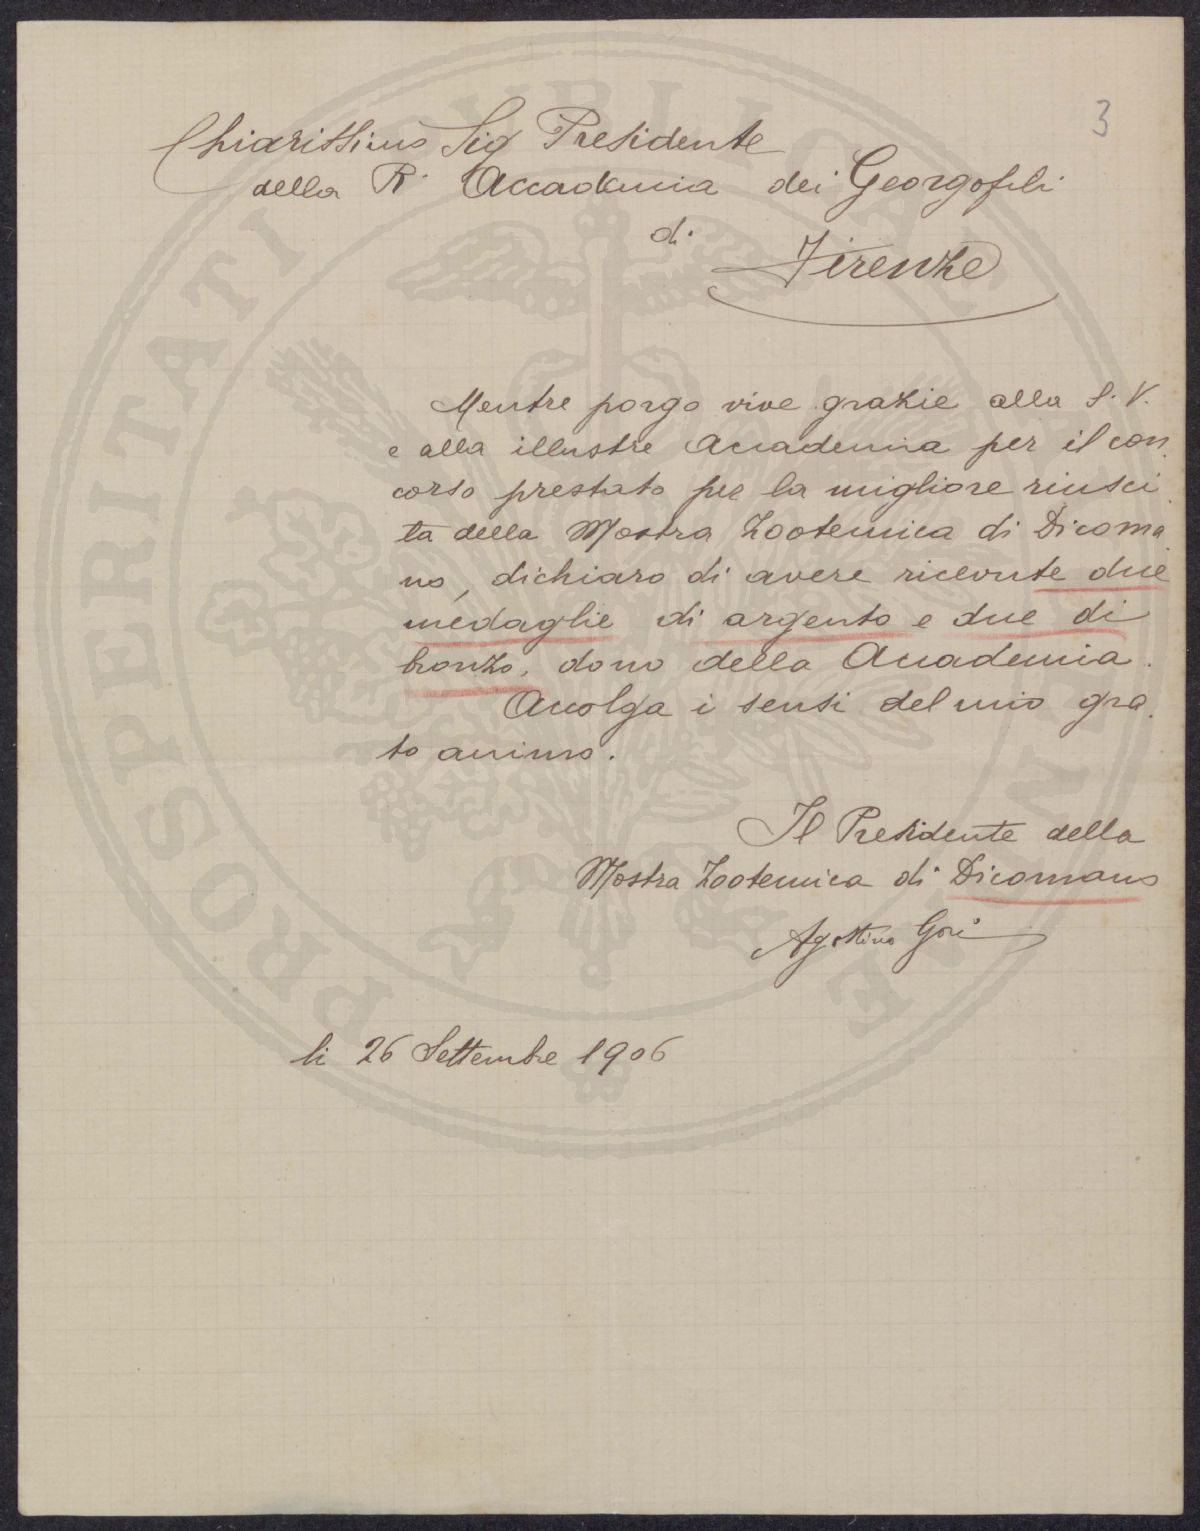 3
Chiarissimo Sig Presidente
della R. Accademia dei Georgofili
di
Firenze
Mentre porgo vive grazie alla S. V.
e alla illustre Accademia per il con
corso prestato per la migliore riusci
ta della Mostra Zootecnica di Dicoma
no, dichiaro di avere ricevute due
medaglie di argento e due di
bronzo, dono della Accademia.
Accolga i sensi del mio gra
to animo.
Il Presidente della
Mostra Zootecnica di Dicomano
Agostino Gori
li 26 Settembre 1906
PROSPERITATI PUBLICAE AUGENDAE